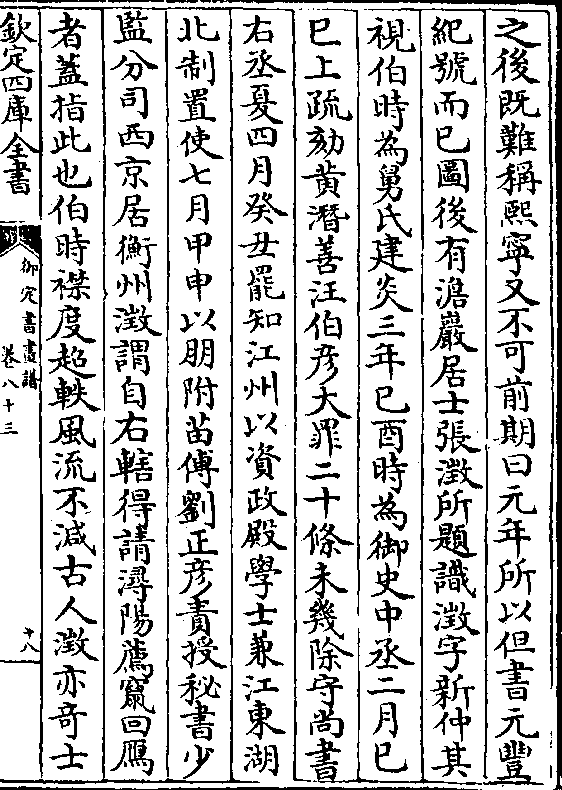 之後既難稱熙寧又不可前期曰元年所以但書元豐
紀號而已圖後有澹巖居士張澂所題識澂字新仲其
視伯時為舅氏建炎三年巳酉時為御史中丞二月巳
巳上疏劾黄潛善汪伯彦大罪二十條未幾除守尚書
右丞夏四月癸丑罷知江州以資政殿學士兼江東湖
北制置使七月甲申以朋附苗傅劉正彦責授秘書少
監分司西京居衡州澂謂自右轄得請潯陽薦竄回鴈
者蓋指此也伯時襟度超軼風流不減古人澂亦竒士
欽定四庫全書
御定書畫譜
卷八十三
十八